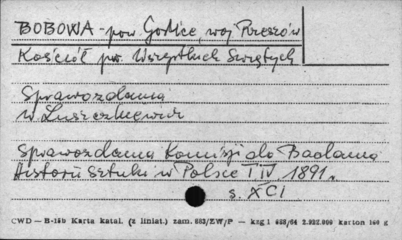 BOBOWA - pow. Gorlice, woj Rzeszów
Kościół pw. Wszystkich Świętych
Sprawozdania
W. Łuszczkiewicz
Sprawozdania Komisji do Badania
Historii Sztuki w Polsce T IV 1891.
s. XCI
CWD — B-15b Karta katal. (z liniat.) zam. 683/ZW/P — kzg 1 428/64 2.922.000 karton 160 g